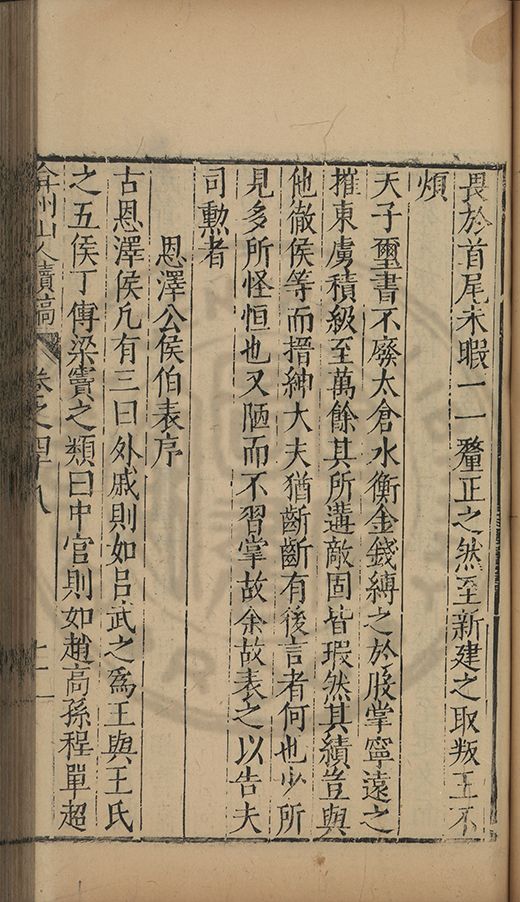 畏於首尾未暇一一釐正之然至新建之取叛王不
煩
天子璽書不廢太倉水衡金錢縛之於股掌寧遠之
摧東虜積級至萬餘其所遘敵固皆瑕然其績豈與
他徹侯等而搢紳大夫猶齗齗有後言者何也少所
見多所怪恒也又陋而不習掌故余故表之以告夫
司勲者
恩澤公侯伯表序
古恩澤侯凡有三曰外戚則如呂武之爲王與王氏
之五侯丁傅梁竇之類曰中官則如趙高孫程單超
弇州山人續稿 卷之四十八